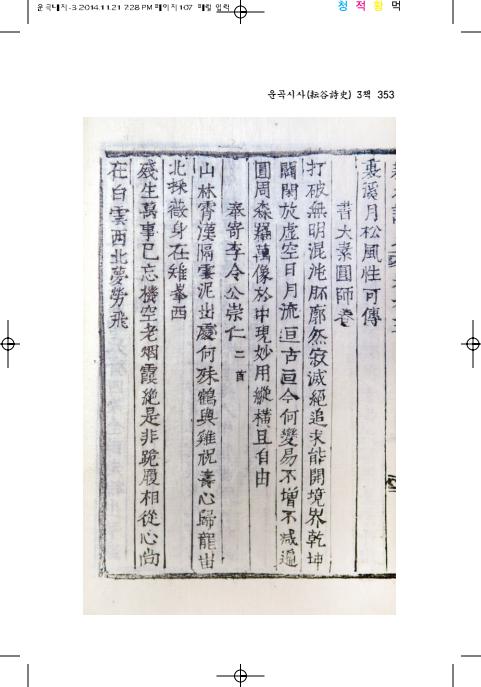 운곡내지-3 2014.11.21 7:28 PM 페이지107 매킬 입력
청 적 황 먹
운곡시사(耘谷詩史) 3책 353
裊溪月松風性可傳
書大素圓師卷
打破無明混沌胚廓然寂滅絕追求能開境界乾坤
闊閑放虛空日月流亘古亘今何變易不增不减遍
圓周森羅萬像於中現妙用縱橫且自由
奉寄李令公崇仁 二首
山林霄漢隔雲泥出處何殊鶴與雞祝壽心歸龍岫
北採薇身在雉峯西
殘生萬事已忘機空老烟霞絶是非跪履相從心尙
在白雲西北夢勞飛